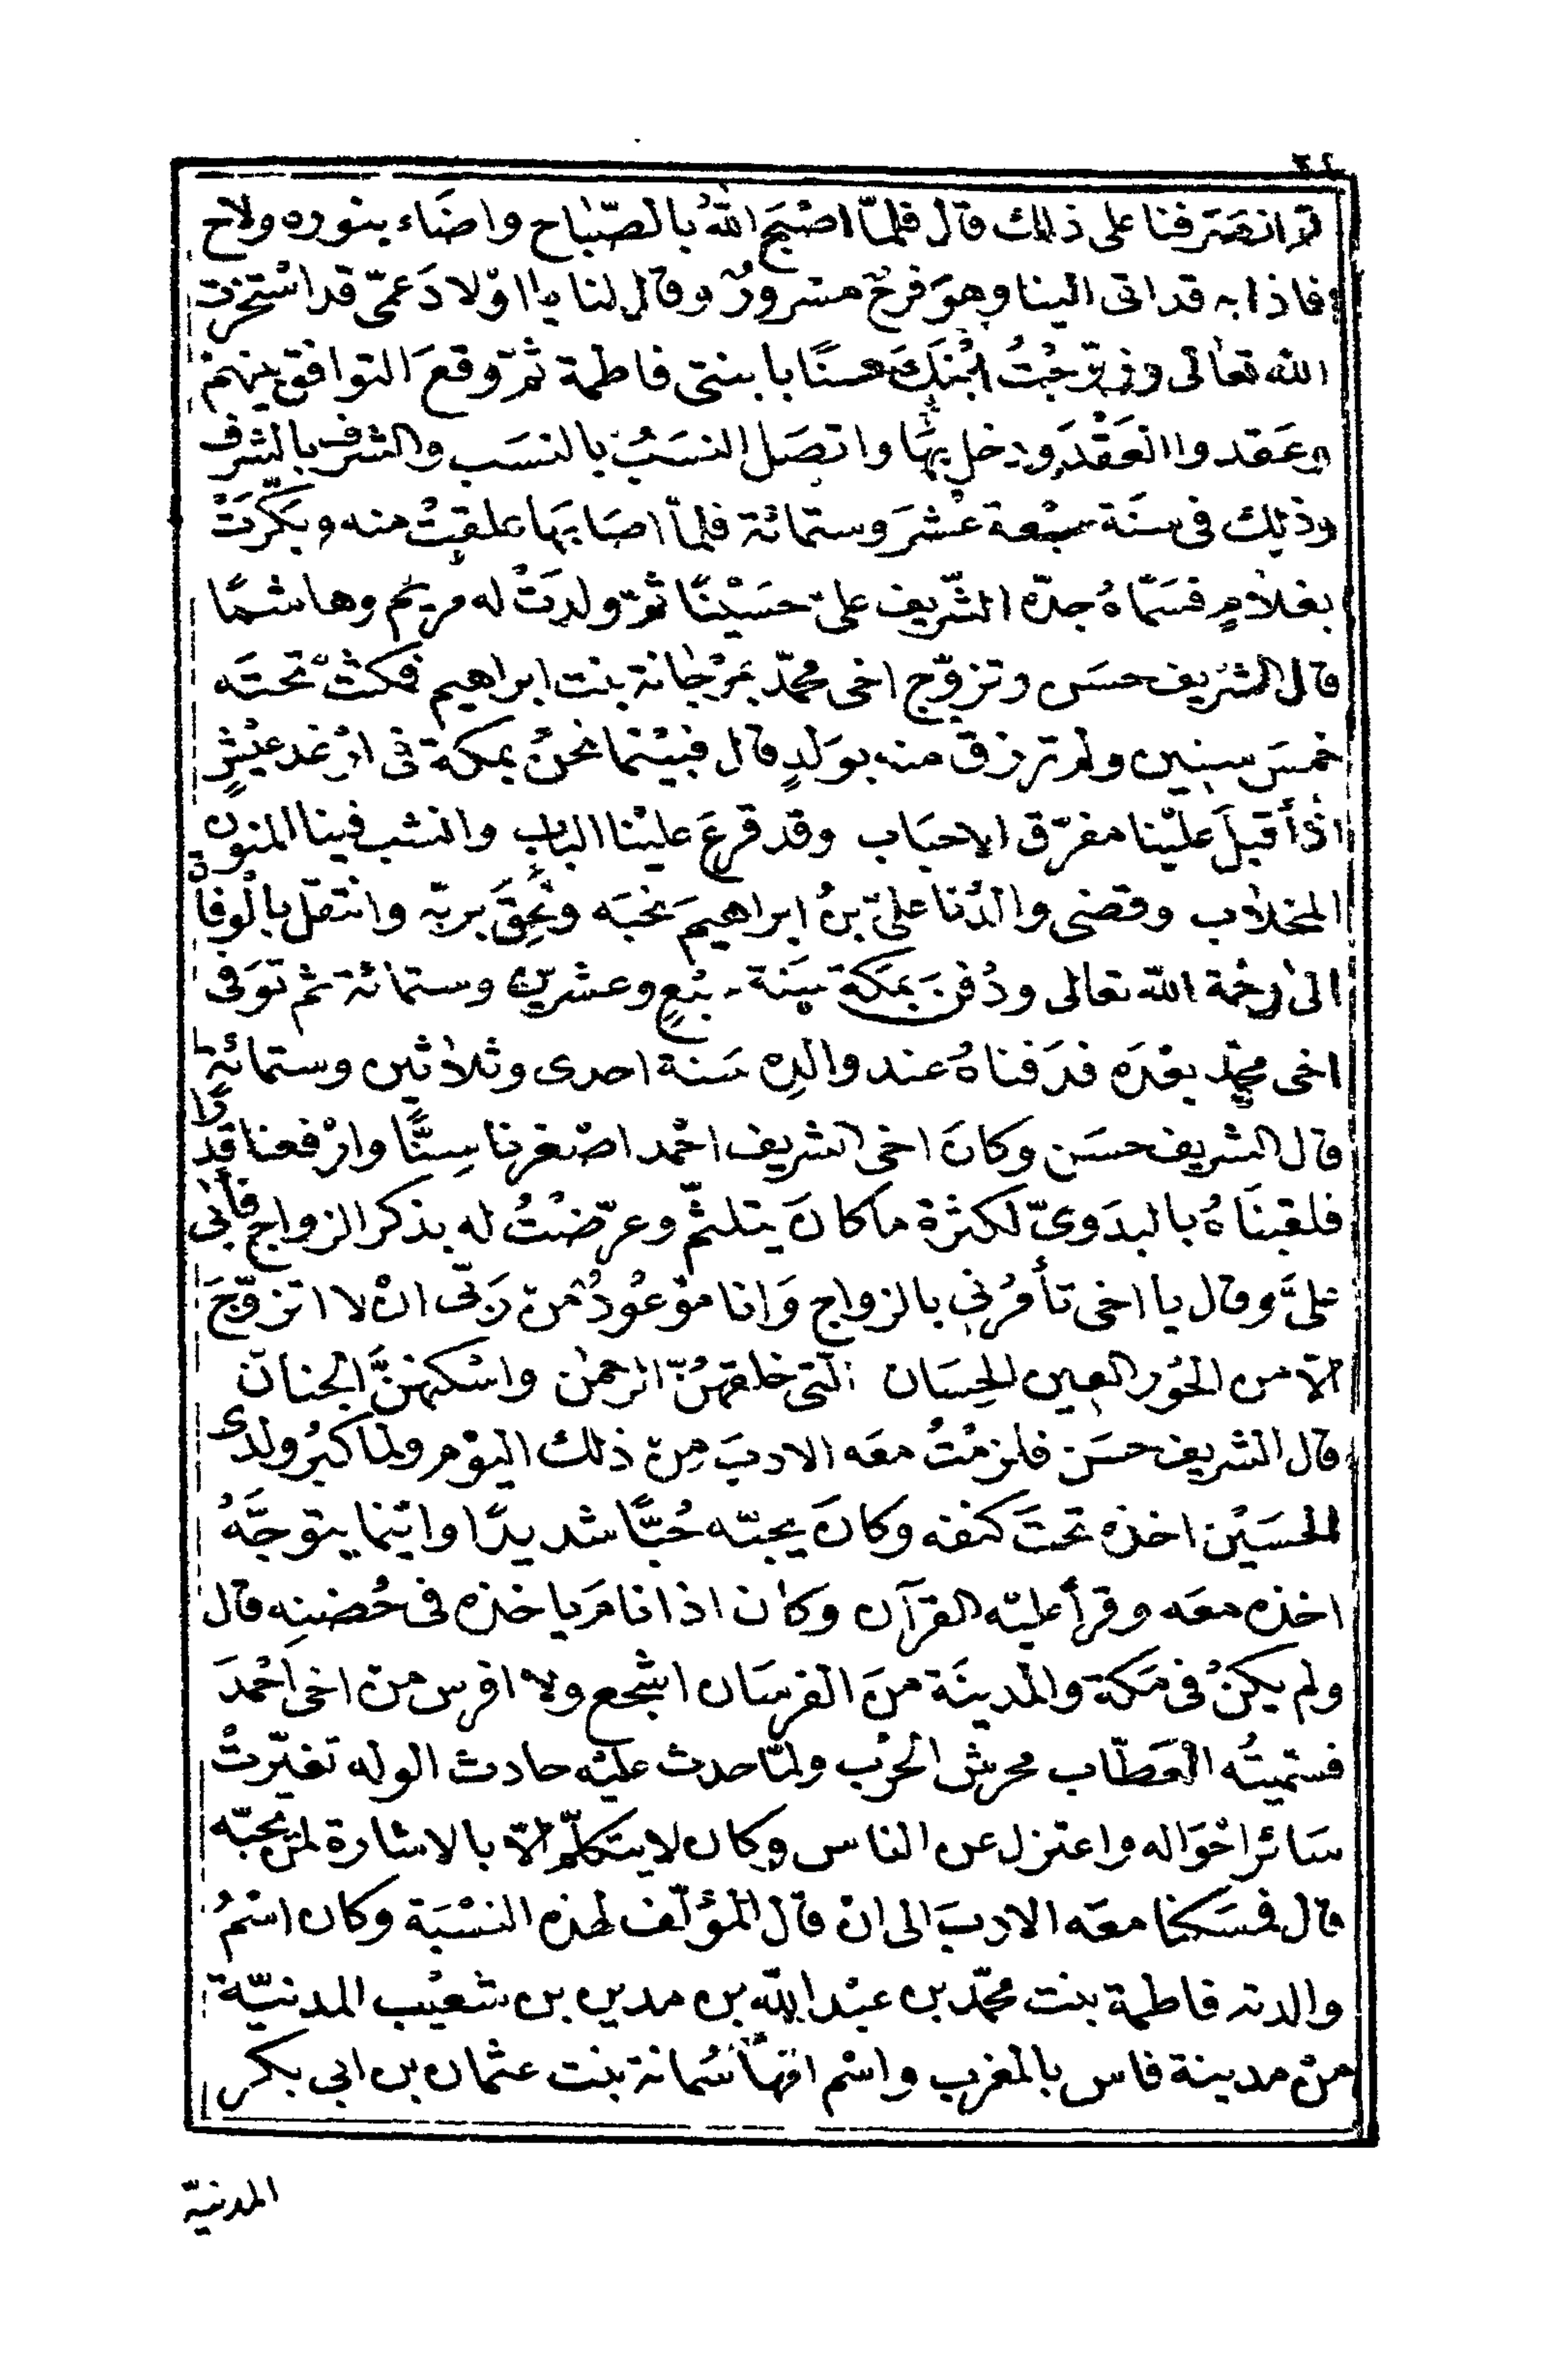 ٣٤
ثم انصرفنا على ذلك قال فلمّا اصْبَح اللهُ بالصّباح واضَاء بنوره ولاح
فاذا به قد اتى الينا وهوَ فرحٌ مسرورٌ وقال لنا يا اوْلادَ عمّى قد اسْتخرت
الله تعالى وزوّجْتُ ابْنَكَ حسنًا بابنتى فاطمة ثمّ وقعَ التوافق بينهمْ
وعَقدوا العَقْدَ ودخل بهَا واتصَل النسَبُ بالنسَب والشرف بالشرف
وذلك فى سنَة سبْعة عشْرَ وستمائة فلمّا اصَابهَا علقتْ منه وبكّرَتْ
بغلامٍ فسَمّاهُ جدّه الشّريف علىّ حسَيْنًا ثمّ ولدتْ له مريَم وهاشمًا
قال الشريف حسَن وتزوّج اخى محمّد بمرْجانة بنت ابراهيم فمكثتْ تحتَه
خمسَ سنين ولم ترزق منه بوَلدٍ قال فبيْنما نحنُ بمكة فى ارْغد عيْشٍ
اذْ أقبلَ عليْنا مفرّق الاحبَاب وقد قرعَ عليْنا الباب وانشب فينا المنون
المخلاب وقضى والدُنا علىّ بنُ ابراهيمَ نحبَه ولحِقَ بربّه وانتقل بالوفاة
الى رحْمة الله تعالى ودُفنَ بمَكة سَنة سبْعٍ وعشرين وستمائة ثم توَفى
اخى محمّد بعْدَه فدَفناهُ عند والدِه سَنة احدى وثلاثين وستمائة
قال الشريف حسَن وكانَ اخى الشريف احْمد اصْغرنا سِنًّا وارْفعنا قدرًا
فلقبنَاهُ بالبدَوىّ لكثرة ما كانَ يتلثّم وعرّضْتُ له بذكر الزواج فأبى
علىَّ وقال يا اخى تأمُرُنى بالزواج وَانا موْعُودٌ منْ رَبّى انْ لا اتزوّجَ
الّا من الحُور العين الحِسَان التى خلقهُنّ الرحمٰن واسْكنهنَّ الجنان
قال الشريف حسَن فلزمْتُ معَه الادبَ مِنْ ذلك اليوْم ولما كبُر ولدى
الحسَيْن اخذه تحتَ كنفه وكانَ يحبّه حُبًّا شديدًا واينما يتوجَّهُ
اخذه معَه وقرأ عليْه القرآن وكان اذا نامَ ياخذه فى حُضنِه قال
ولم يكنْ فى مَكة والمدينَة منَ الفرسَان اشْجع ولا افرس منْ اخى احْمدَ
فسَمّيتُه العَطّاب محرش الحَرْب ولمّا حدث عليْه حادث الوله تغيّرتْ
سَائر احْوَاله واعتزل عن الناس وكان لا يتكلّم الّا بالاشارة لمن يحبّه
قال فسَكنا معَه الادبَ الى انْ قال المؤلّف لهذه النسْبَة وكان اسْمُ
والدته فاطمة بنت محمّد بن عبْد الله بن مدين بن شعيْب المدنيّة
منْ مدينة فاس بالمغرب واسْم امّهَا سُمانة بنت عثمان بن ابى بكر
المدنيّة